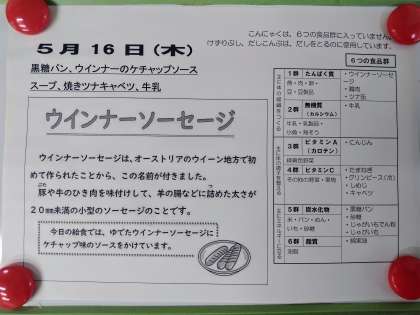 5月16日(木)
黒糖パン、ウインナーのケチャップソース
スープ、焼きツナキャベツ、牛乳
ウインナーソーセージ
ウインナーソーセージは、オーストリアのウイーン地方で初
めて作られたことから、この名前が付きました。
豚や牛のひき肉を味付けして、羊の腸などに詰めた太さが
20mm未満の小型のソーセージのことです。
今日の給食では、ゆでたウインナーソーセージに
ケチャップ味のソースをかけています。
こんにゃくは、6つの食品群に入っていません。
けずりぶし、だしこんぶは、だしをとるのに使用しています。
6つの食品群
1群 たんぱく質
魚・肉・卵・
豆・豆製品
・ウインナーソーセージ
・鶏肉
・ツナ缶
2群 無機質
(カルシウム)
牛乳・乳製品・
小魚・海そう
・牛乳
3群 ビタミンA
(カロテン)
緑黄色野菜
・にんじん
4群 ビタミンC
その他の野菜・果物
・たまねぎ
・グリンピース(冷)
・しめじ
・キャベツ
5群 炭水化物
米・パン・めん・
いも・砂糖
・黒糖パン
・砂糖
・じゃがいもでん粉
・じゃがいも
6群 脂質
油脂
・綿実油